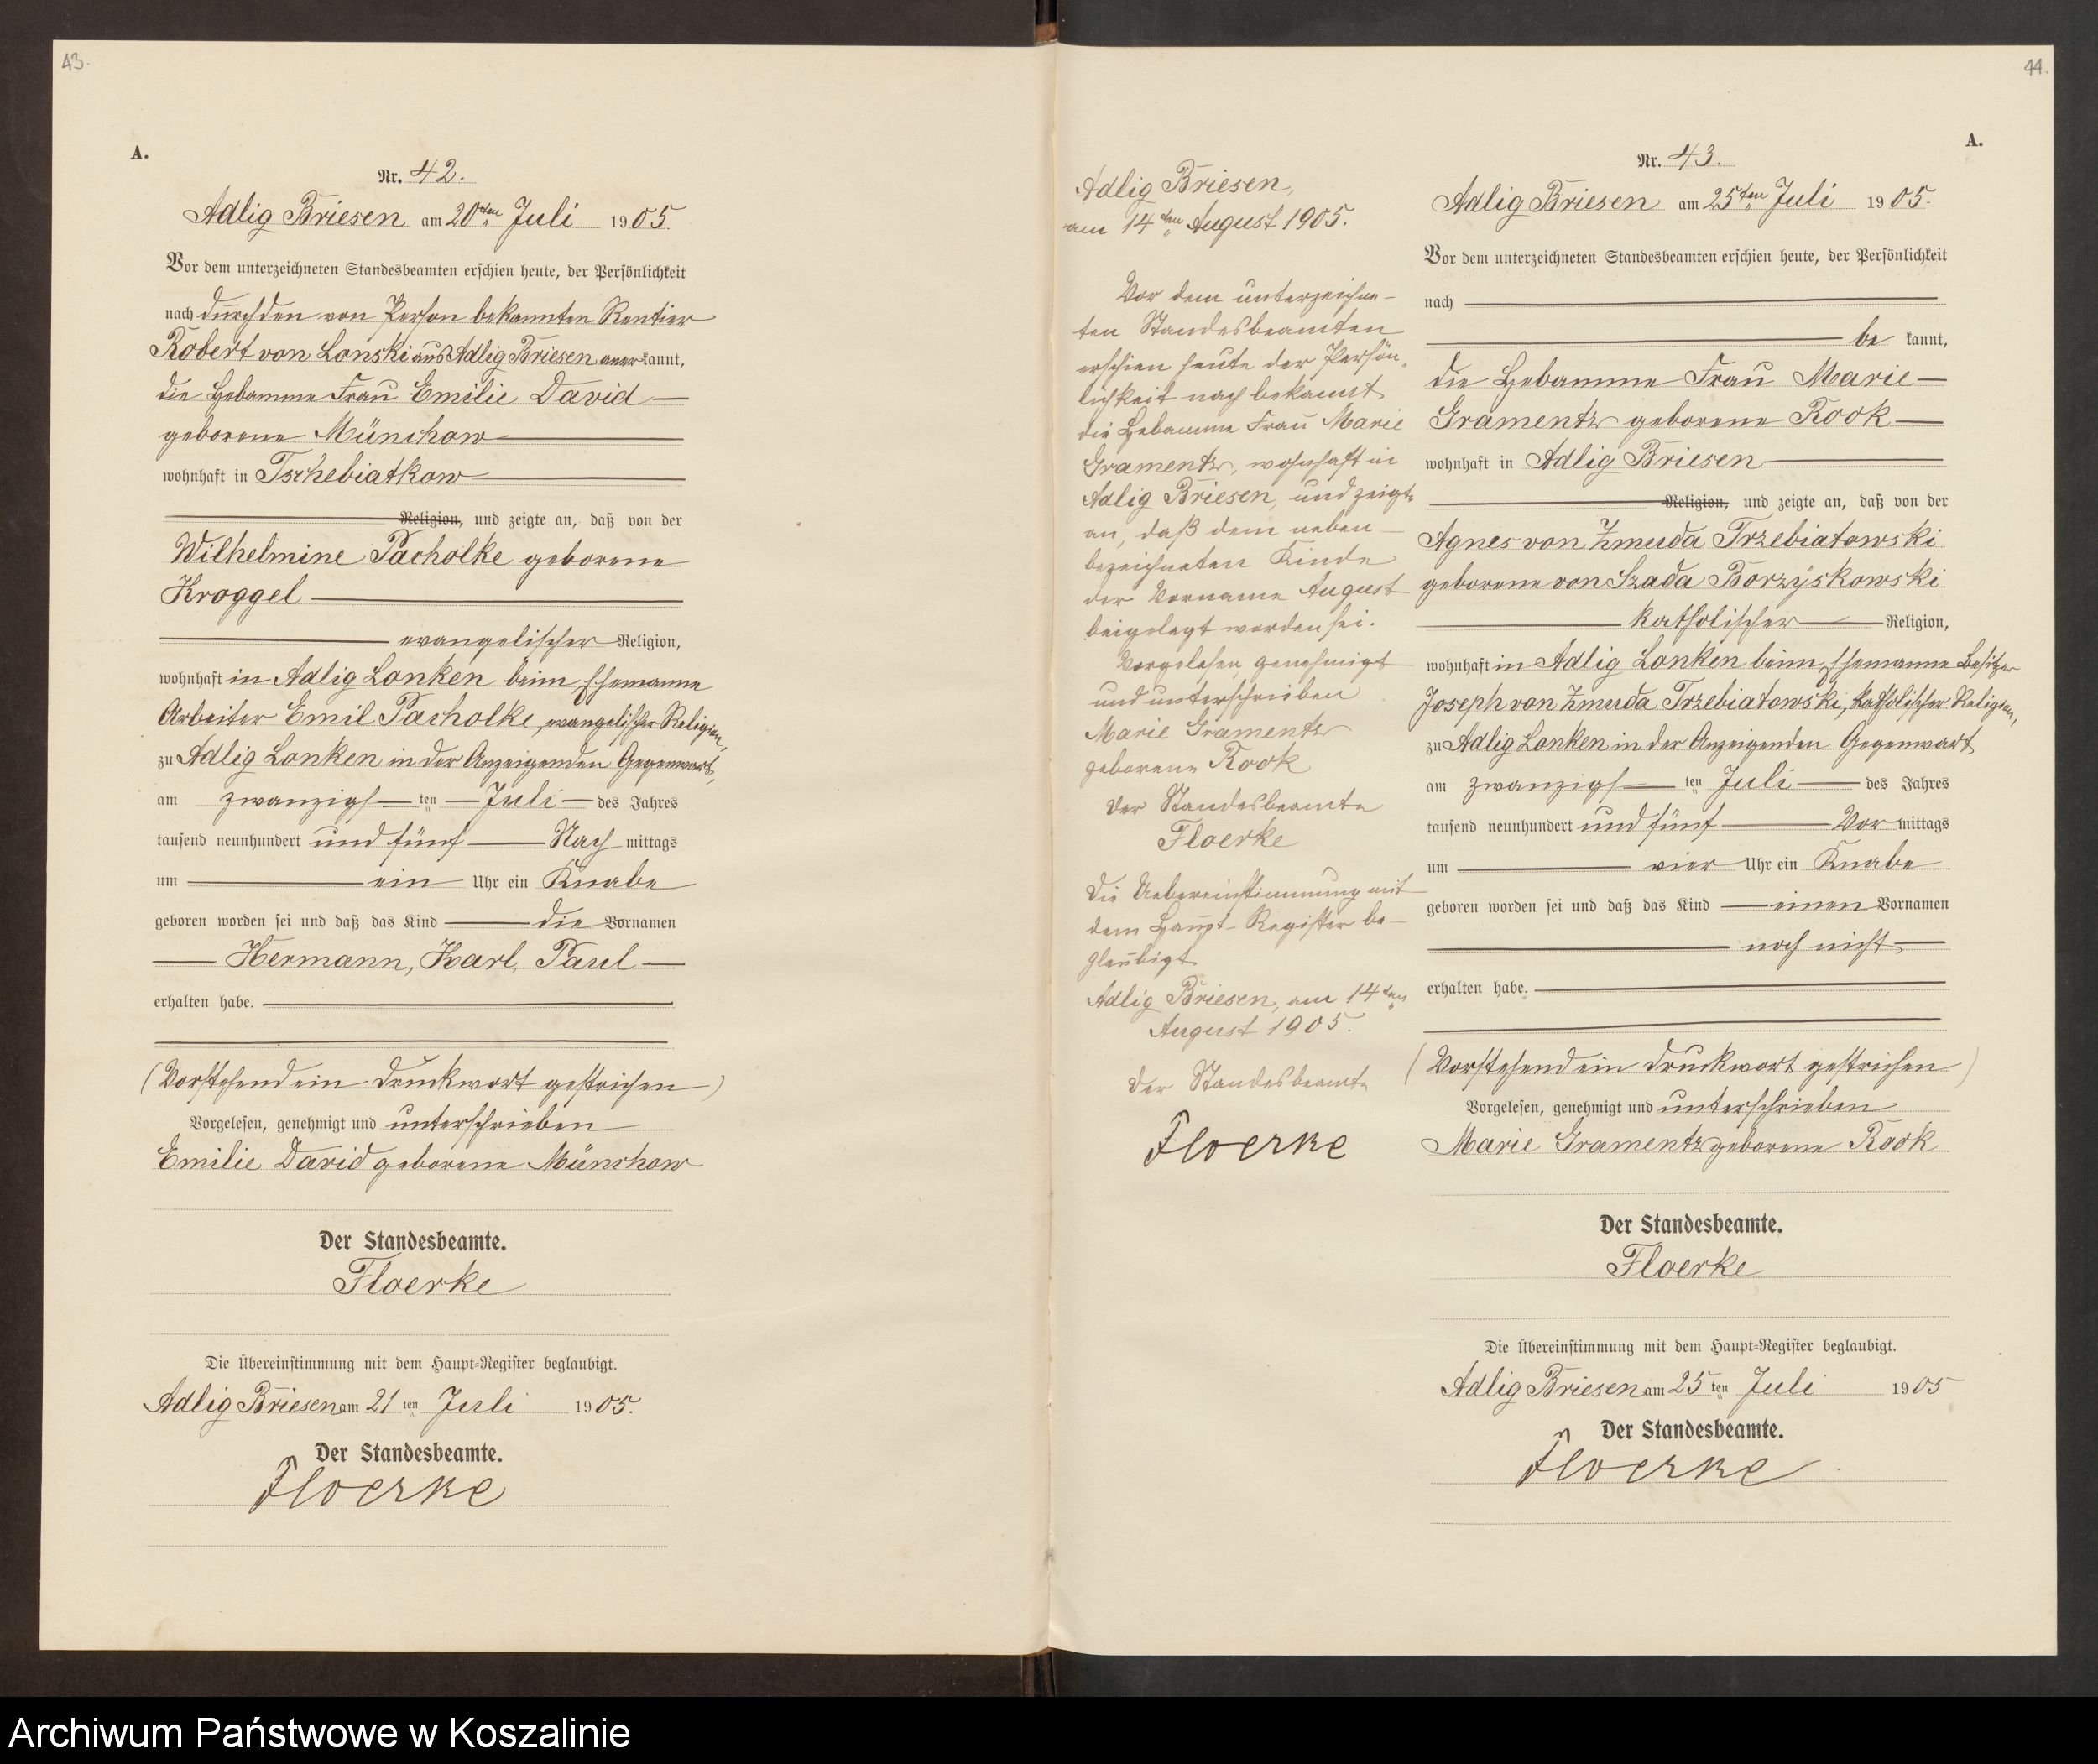 43.
A.
Nr. 42.
Adlig Briesen am 20ten Juli 1905.
Vor dem unterzeichneten Standesbeamten erschien heute, der Persönlichkeit
nach durch den von Person bekannten Rentier
Robert von Lonski aus Adlig Briesen anerkannt,
die Hebamme Frau Emilie David
geborene Münchow
wohnhaft in Tschebiatkow
Religion, und zeigte an, daß von der
Wilhelmine Pacholke geborene
Kroggel
evangelischer Religion,
wohnhaft in Adlig Lonken beim Ehemanne
Arbeiter Emil Pacholke, evangelischer Religion,
zu Adlig Lonken in der Anzeigenden Gegenwart,
am zwanzigsten Juli des Jahres
tausend neunhundert und fünf Nachmittags
um ein Uhr ein Knabe
geboren worden sei und daß das Kind die Vornamen
Hermann, Karl, Paul
erhalten habe.
(Vorstehend ein Druckwort gestrichen)
Vorgelesen, genehmigt und unterschrieben
Emilie David geborene Münchow
Der Standesbeamte.
Floerke
Die Übereinstimmung mit dem Haupt-Register beglaubigt.
Adlig Briesen am 21ten Juli 1905.
Der Standesbeamte.
Floerke
Adlig Briesen,
am 14ten August 1905.
Vor dem unterzeichne-
ten Standesbeamten
erschien heute der Persön-
lichkeit nach bekannt
die Hebamme Frau Marie
Gramentz, wohnhaft in
Adlig Briesen, und zeigte
an, daß dem neben-
bezeichneten Kinde
der Vorname August
beigelegt worden sei.
Vorgelesen genehmigt
und unterschrieben
Marie Gramentz
geborene Rook
Der Standesbeamte
Floerke
Die Uebereinstimmung mit
dem Haupt-Register be-
glaubigt
Adlig Briesen, am 14ten
August 1905.
Der Standesbeamte
Floerke
44.
A.
Nr. 43.
Adlig Briesen am 25ten Juli 1905.
Vor dem unterzeichneten Standesbeamten erschien heute, der Persönlichkeit
nach
be kannt,
die Hebamme Frau Marie
Gramentz geborene Rook
wohnhaft in Adlig Briesen
Religion, und zeigte an, daß von der
Agnes von Zmuda Trzebiatowski
geborene von Szada Borzyskowski
katholischer Religion,
wohnhaft in Adlig Lonken beim Ehemanne Besitzer
Joseph von Zmuda Trzebiatowski, katholischer Religion,
zu Adlig Lonken in der Anzeigenden Gegenwart
am zwanzigsten Juli des Jahres
tausend neunhundert und fünf Vormittags
um vier Uhr ein Knabe
geboren worden sei und daß das Kind einen Vornamen
noch nicht
erhalten habe.
(Vorstehend ein Druckwort gestrichen)
Vorgelesen, genehmigt und unterschrieben
Marie Gramentz geborene Rook
Der Standesbeamte.
Floerke
Die Übereinstimmung mit dem Haupt-Register beglaubigt.
Adlig Briesen am 25ten Juli 1905
Der Standesbeamte.
Floerke
Archiwum Państwowe w Koszalinie